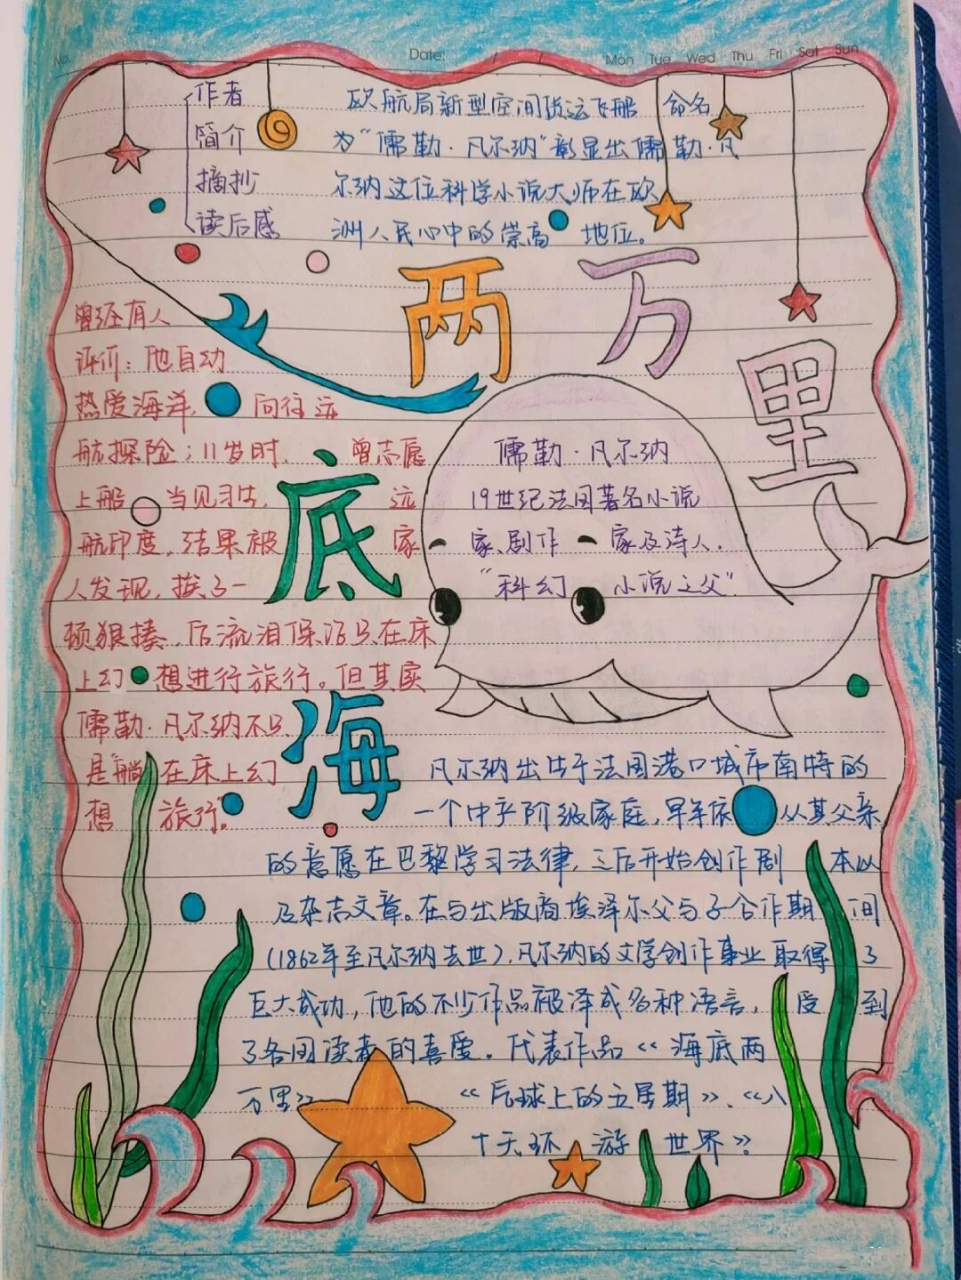 Date: / /
Mon Tue Wed Thu Fri Sat Sun
作者
简介
摘抄
读后感
欧航局新型空间货运飞船 命名
为“儒勒·凡尔纳”彰显出儒勒·凡
尔纳这位科学小说大师在欧
洲人民心中的崇高 地位。
两万里
底
海
曾经有人
评价：他自幼
热爱海洋, 向往远
航探险；11岁时, 曾志愿
上船 当见习生, 远
航印度, 结果被 家
人发现, 挨了一
顿狠揍, 后流泪保证只在床
上幻 想进行旅行。但其实
儒勒·凡尔纳不只
是“躺 在床上幻
想 旅行”。
儒勒·凡尔纳
19世纪法国著名小说
家、剧作 家及诗人.
“科幻 小说之父”.
凡尔纳出生于法国港口城市南特的
一个中产阶级家庭, 早年依 从其父亲
的意愿在巴黎学习法律, 之后开始创作剧 本以
及杂志文章。在与出版商埃泽尔父与子合作期 间
(1862年至凡尔纳去世), 凡尔纳的文学创作事业 取得 了
巨大成功, 他的不少作品被译成多种语言, 受 到
了各国读者的喜爱. 代表作品《海底两
万里》 《气球上的五星期》、《八
十天环 游 世界》